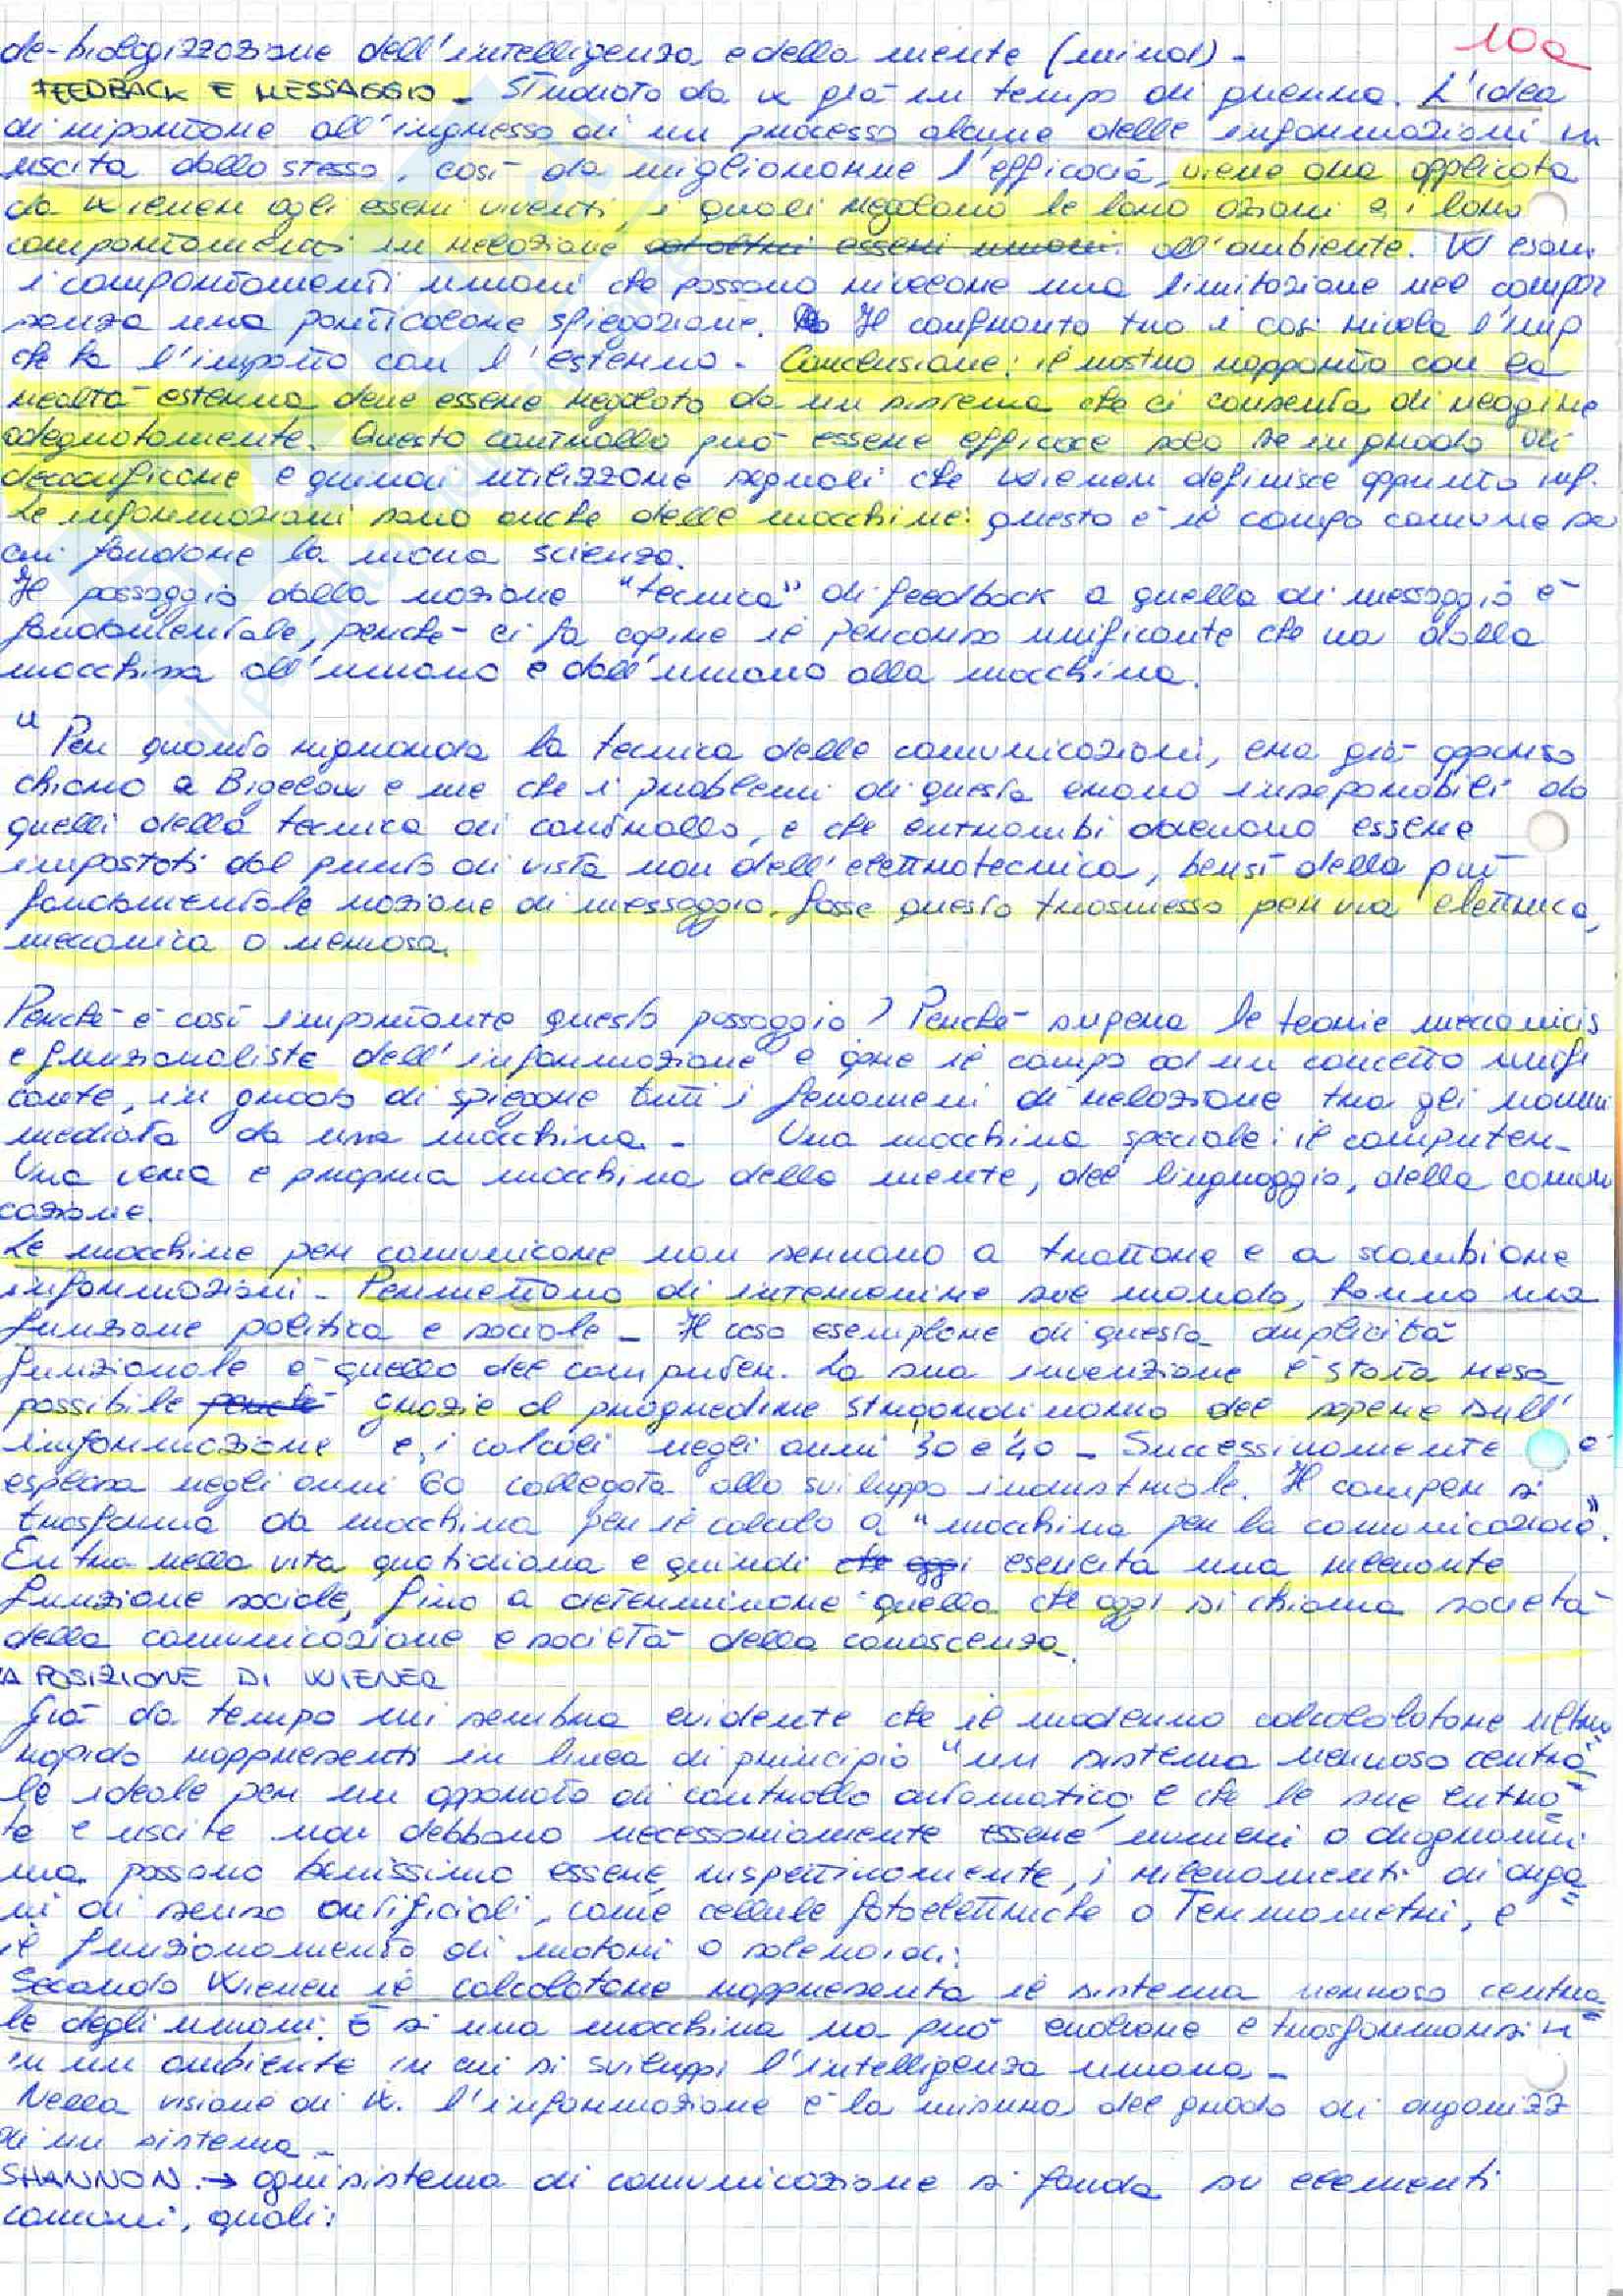 10a
de-biologizzazione dell'intelligenza e della mente (mind) -
FEEDBACK E MESSAGGIO - Studiato da W già in tempo di guerra. L'idea
di riportare all'ingresso di un processo alcune delle informazioni in
uscita dallo stesso, così da migliorarne l'efficacia, viene ora applicata
da Wiener agli esseri viventi, i quali regolano le loro azioni e i loro
comportamenti in relazione ad altri esseri umani. all'ambiente. W esam.
i comportamenti umani che possono ricevere una limitazione nel compor
senza una particolare spiegazione. Il confronto tra i cosi rivela l'imp
che ha l'impatto con l'esterno. Conclusione: il nostro rapporto con la
realtà esterna deve essere regolato da un sistema che ci consenta di reagire
adeguatamente. Questo controllo può essere efficace solo se in grado di
decodificare e quindi utilizzare segnali che Wiener definisce appunto inf.
Le informazioni sono anche delle macchine: questo è il campo comune su
cui fondare la nuova scienza.
Il passaggio dalla nozione "tecnica" di feedback a quella di messaggio è
fondamentale, perché ci fa capire il percorso unificante che va dalla
macchina all'umano e dall'umano alla macchina.
" Per quanto riguarda la tecnica delle comunicazioni, era già apparso
chiaro a Bigelow e me che i problemi di questa erano inseparabili da
quelli della tecnica di controllo, e che entrambi dovevano essere
impostati dal punto di vista non dell'elettrotecnica, bensì della più
fondamentale nozione di messaggio, fosse questo trasmesso per via elettrica,
meccanica o nervosa.
Perché è così importante questo passaggio? Perché supera le teorie meccanicis
e funzionaliste dell'informazione e apre il campo ad un concetto unifi
cante, in grado di spiegare tutti i fenomeni di relazione tra gli uomini
mediata da una macchina. - Una macchina speciale: il computer -
Una vera e propria macchina della mente, del linguaggio, della comuni
cazione.
Le macchine per comunicare non servono a trattare e a scambiare
informazioni - Permettono di intervenire sul mondo, hanno una
funzione politica e sociale - Il caso esemplare di questa duplicità
funzionale è quello del computer. La sua invenzione è stata resa
possibile perché grazie al progredire straordinario del sapere sull'
informazione e i calcoli negli anni 30 e 40 - Successivamente è
esplosa negli anni 60 collegata allo sviluppo industriale. Il comper si
trasforma da macchina per il calcolo a "macchina per la comunicazione".
Entra nella vita quotidiana e quindi che oggi esercita una rilevante
funzione sociale, fino a determinare quella che oggi si chiama società
della comunicazione e società della conoscenza.
A POSIZIONE DI WIENER
Già da tempo mi sembra evidente che il moderno calcolatore ultra
rapido rappresenti in linea di principio "un sistema nervoso centra=
le ideale per un apparato di controllo automatico e che le sue entra=
te e uscite non debbano necessariamente essere numeri o diagrammi
ma possano benissimo essere, rispettivamente, i rilevamenti di orga=
ni di senso artificiali, come cellule fotoelettriche o Termometri, e
il funzionamento di motori o solenoidi.
Secondo Wiener il calcolatore rappresenta il sistema nervoso centra
le degli umani. È sì una macchina ma può evolvere e trasformarsi
in un ambiente in cui si sviluppi l'intelligenza umana -
Nella visione di W. l'informazione è la misura del grado di organizz
di un sistema -
SHANNON. → ogni sistema di comunicazione si fonda su elementi
comuni, quali: